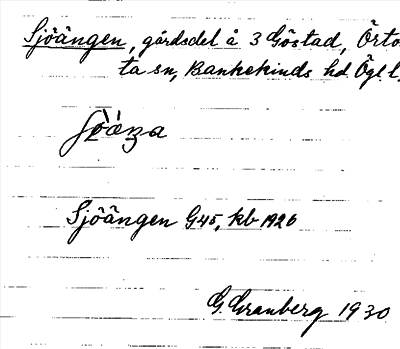 Sjöängen, gårdsdel å 3 Göstad, Örto
ta sn, Bankekinds hd Ögl l.
Sjöängen G45, kb 1926
G. Granberg 1930